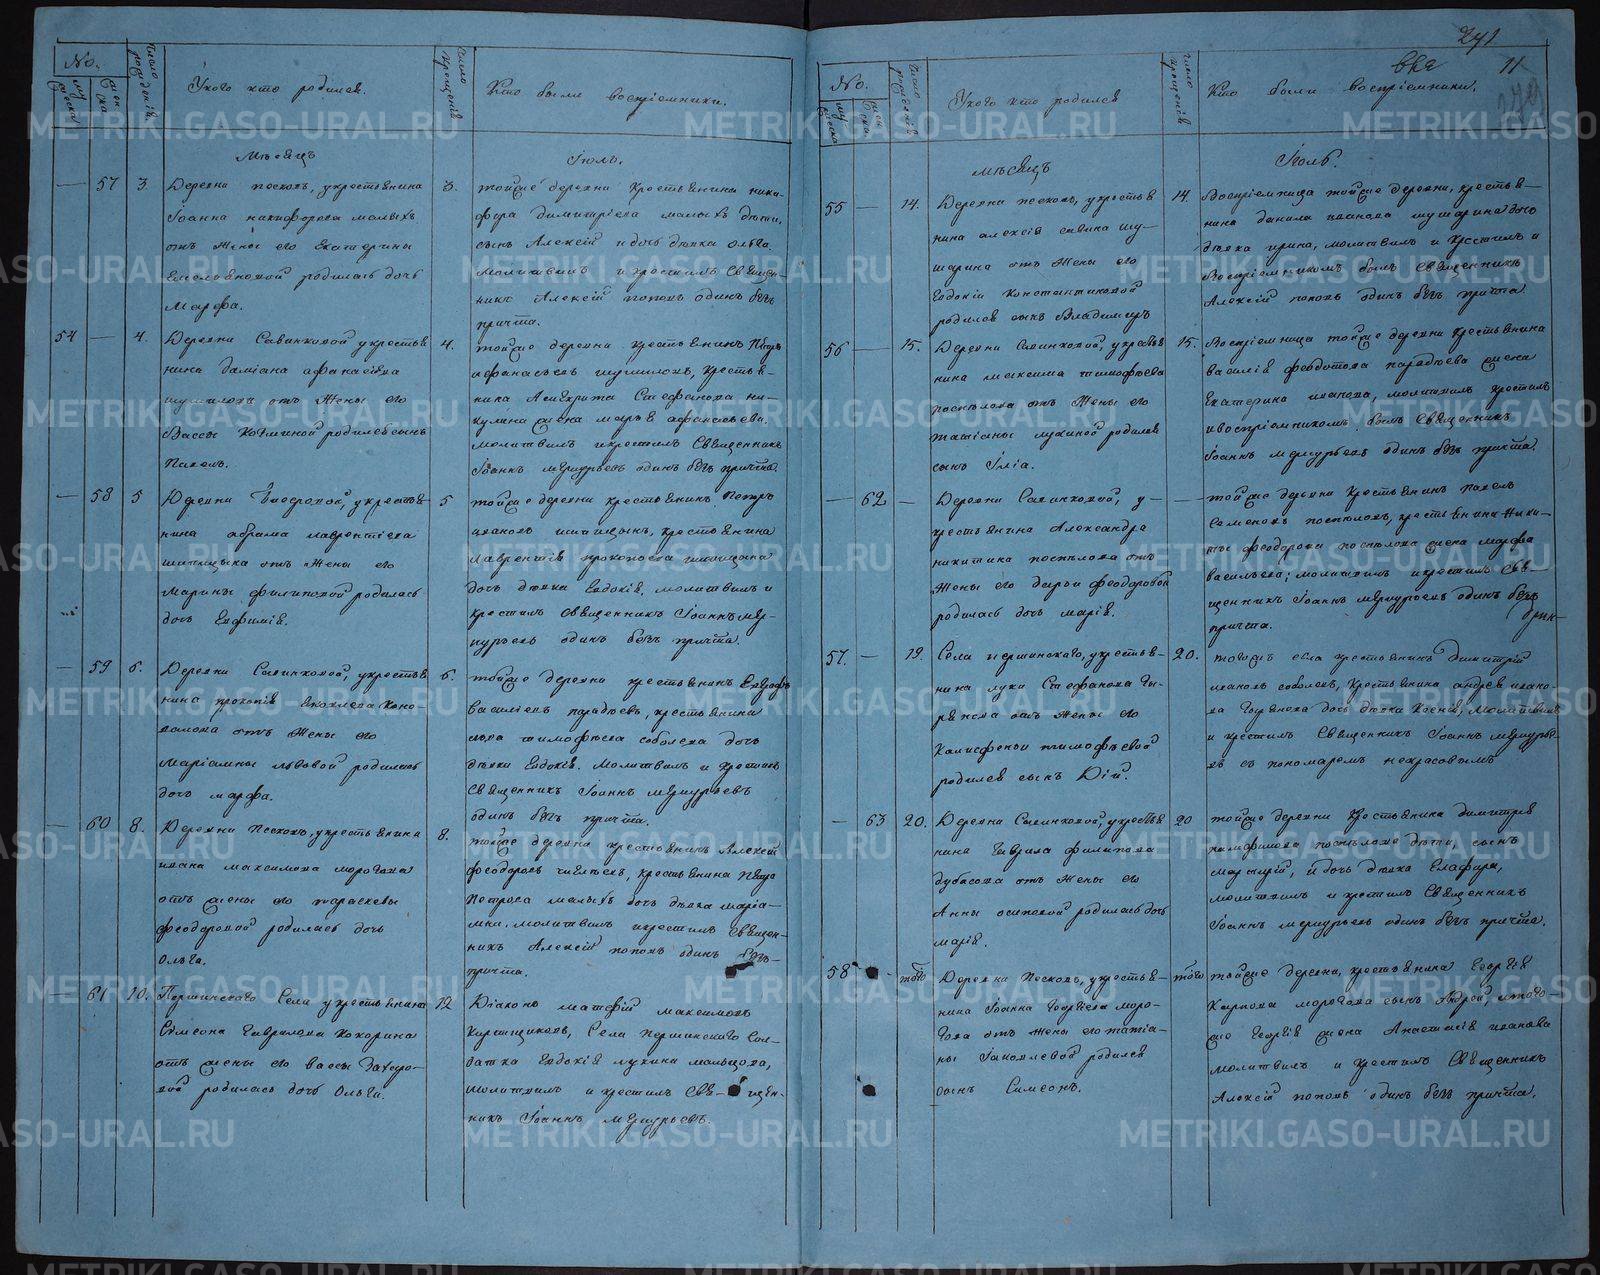 271
вкг 11
No.
мужеска
женска
число рождений
У кого кто родился.
число крещений
Кто были восприемники.
Мѣсяцъ
Июль.
57 3. Деревни песковъ, у крестьянина
Iоанна никифорова малыхъ
отъ жены его Екатерины
родилась дочь
Марфа.
3. тойже деревни крестьянина ники-
фора димитрiева малыхъ дѣти,
сынъ Алексiй и дочь дѣвка Ольга.
молитвилъ и крестилъ Священ-
никъ Алексiй поповъ одинъ безъ
причта.
54 4. Деревни Савинковой у крестья
нина Дамiана афанасiева
шумилова отъ жены его
Вассы Козминой родился сынъ
Павелъ.
4. тойже деревни крестьянинъ Петръ
афанасьевъ шумиловъ, крестья-
нина Стефанова
жена марья афанасьева.
молитвилъ и крестилъ Священникъ
Iоаннъ меркурьевъ одинъ безъ причта.
58 5 Деревни у крестья
нина абрама лаврентiева
отъ жены его
Марины филиповой родилась
дочь Евфимiя.
5 тойже деревни крестьянинъ Петръ
ивановъ крестьянина
лаврентiя прокопьева
дочь дѣвка Евдокiя, молитвилъ и
крестилъ Священникъ Iоаннъ мер-
курьевъ одинъ безъ причта.
59 6. Деревни Савинковой, у крестья
нина прокопiя Яковлева Коно-
валова отъ жены его
Марiамны львовой родилась
дочь марфа.
6. тойже деревни крестьянинъ Евграфъ
василiевъ крестьянина
тимофѣева соболева дочь
дѣвка Евдокiя. Молитвилъ и крестилъ
Священникъ Iоаннъ меркурьевъ
одинъ безъ причта.
60 8. Деревни Песковъ, у крестьянина
ивана максимова морозова
отъ жены его параскевы
феодоровой родилась дочь
Ольга.
8. тойже деревни крестьянинъ Алексiй
феодоровъ крестьянина Петра
Петрова малыхъ дочь дѣвка марiа-
мна, молитвилъ и крестилъ Священ-
никъ Алексiй поповъ одинъ безъ-
причта.
61 10. Першинскаго Села у крестьянина
Симеона Гаврилова Кокорина
отъ жены его вассы Захаро-
вой родилась дочь Ольга.
12 Дiаконъ матфiй максимовъ
Села першинскаго сол-
датка Евдокiя лукина мальцова,
молитвилъ и крестилъ Священ-
никъ Iоаннъ меркурьевъ.
No.
мужеска
женска
число рожденiй
У кого кто родился
число крещенiй
Кто были восприемники.
мѣсяцъ
Iюль.
55 14. Деревни песковъ, у крестья
нина алексiя савина шу-
шарина отъ жены его
Евдокiи константиновой
родился сынъ Владимиръ
14. Воспрiемница тойже деревни, крестья-
нина данила иванова шушарина дочь
дѣвка ирина, молитвилъ и крестилъ и
Воспрiемникомъ былъ Священникъ
Алексiй поповъ одинъ безъ причта
56 15. Деревни Савинковой, у крестья
нина максима тимофѣева
поспѣлова отъ жены его
татiаны лукиной родился
сынъ Iлiа.
15. Воспрiемница тойже деревни крестьянина
василiя феодотова жена
Екатерина иванова, молитвилъ крестилъ
и воспрiемникомъ былъ Священникъ
Iоаннъ меркурьевъ одинъ безъ причта.
62 Деревни Савинковой, у-
крестьянина Александра
никитина поспѣлова отъ
жены его дарьи феодоровой
родилась дочь марiя.
тойже деревни крестьянинъ павелъ
Семеновъ поспѣловъ, крестьянина Ники-
ты феодорова поспѣлова жена марфа
васильева; молитвилъ и крестилъ Свя-
щенникъ Iоаннъ меркурьевъ одинъ безъ
причта.
57. 19. Села першинскаго, у крестья-
нина луки Стефанова Гы-
рянова отъ жены его
Калисфеньи тимофѣевой
родился сынъ Дiй.
20. тогожъ села крестьянинъ димитрiй
ивановъ соболевъ, крестьянина андрея ивано-
ва дочь дѣвка Ксенiя, молитвилъ
и крестилъ Священникъ Iоаннъ меркурье-
въ съ пономаремъ некрасовымъ
63 20. Деревни Савинковой, у крестья
нина Гаврила филипова
дубасова отъ жены его
Анны осиповой родилась дочь
марiя.
20 тойже деревни крестьянина димитрiя
памфилова поспѣлова дѣти, сынъ
и дочь дѣвка Глафира,
молитвилъ и крестилъ Священникъ
Iоаннъ меркурьевъ одинъ безъ причта.
58 того Деревни Песковъ, у крестья-
нина Iоанна Георгiева моро-
зова отъ жены его татiа-
ны Iаковлевой родился
сынъ Симеонъ.
того тойже деревни, крестьянина Георгiя
Карпова морозова сынъ Андрей и того-
же Георгiя жена Анастасiя иванова
молитвилъ и крестилъ Священникъ
Алексiй поповъ одинъ безъ причта.
METRIKI.GASO-URAL.RU